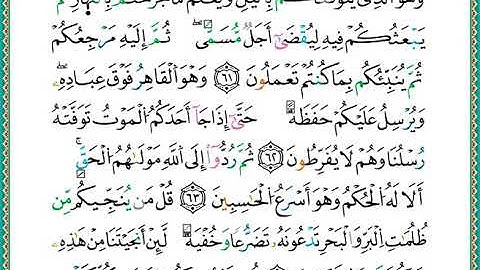 وَهُوَ الَّذِي يَتَوَفَّاكُم بِاللَّيْلِ وَيَعْلَمُ مَا جَرَحْتُم بِالنَّهَارِ ثُمَّ
يَبْعَثُكُمْ فِيهِ لِيُقْضَىٰٓ أَجَلٌ مُّسَمًّى ۖ ثُمَّ إِلَيْهِ مَرْجِعُكُمْ
ثُمَّ يُنَبِّئُكُم بِمَا كُنتُمْ تَعْمَلُونَ ٦١ وَهُوَ الْقَاهِرُ فَوْقَ عِبَادِهِۦ ۖ
وَيُرْسِلُ عَلَيْكُمْ حَفَظَةً حَتَّىٰٓ إِذَا جَآ أَحَدَكُمُ الْمَوْتُ تَوَفَّتْهُ
رُسُلُنَا وَهُمْ لَا يُفَرِّطُونَ ٦٢ ثُمَّ رُدُّوٓا۟ إِلَى اللَّهِ مَوْلَىٰهُمُ الْحَقِّ ۚ
أَلَا لَهُ الْحُكْمُ وَهُوَ أَسْرَعُ الْحَٰسِبِينَ ٦٣ قُلْ مَن يُنَجِّيكُم مِّن
ظُلُمَٰتِ الْبَرِّ وَالْبَحْرِ تَدْعُونَهُۥ تَضَرُّعًا وَخُفْيَةً لَّئِنْ أَنجَيْتَنَا مِنْ هَٰذِهِۦ